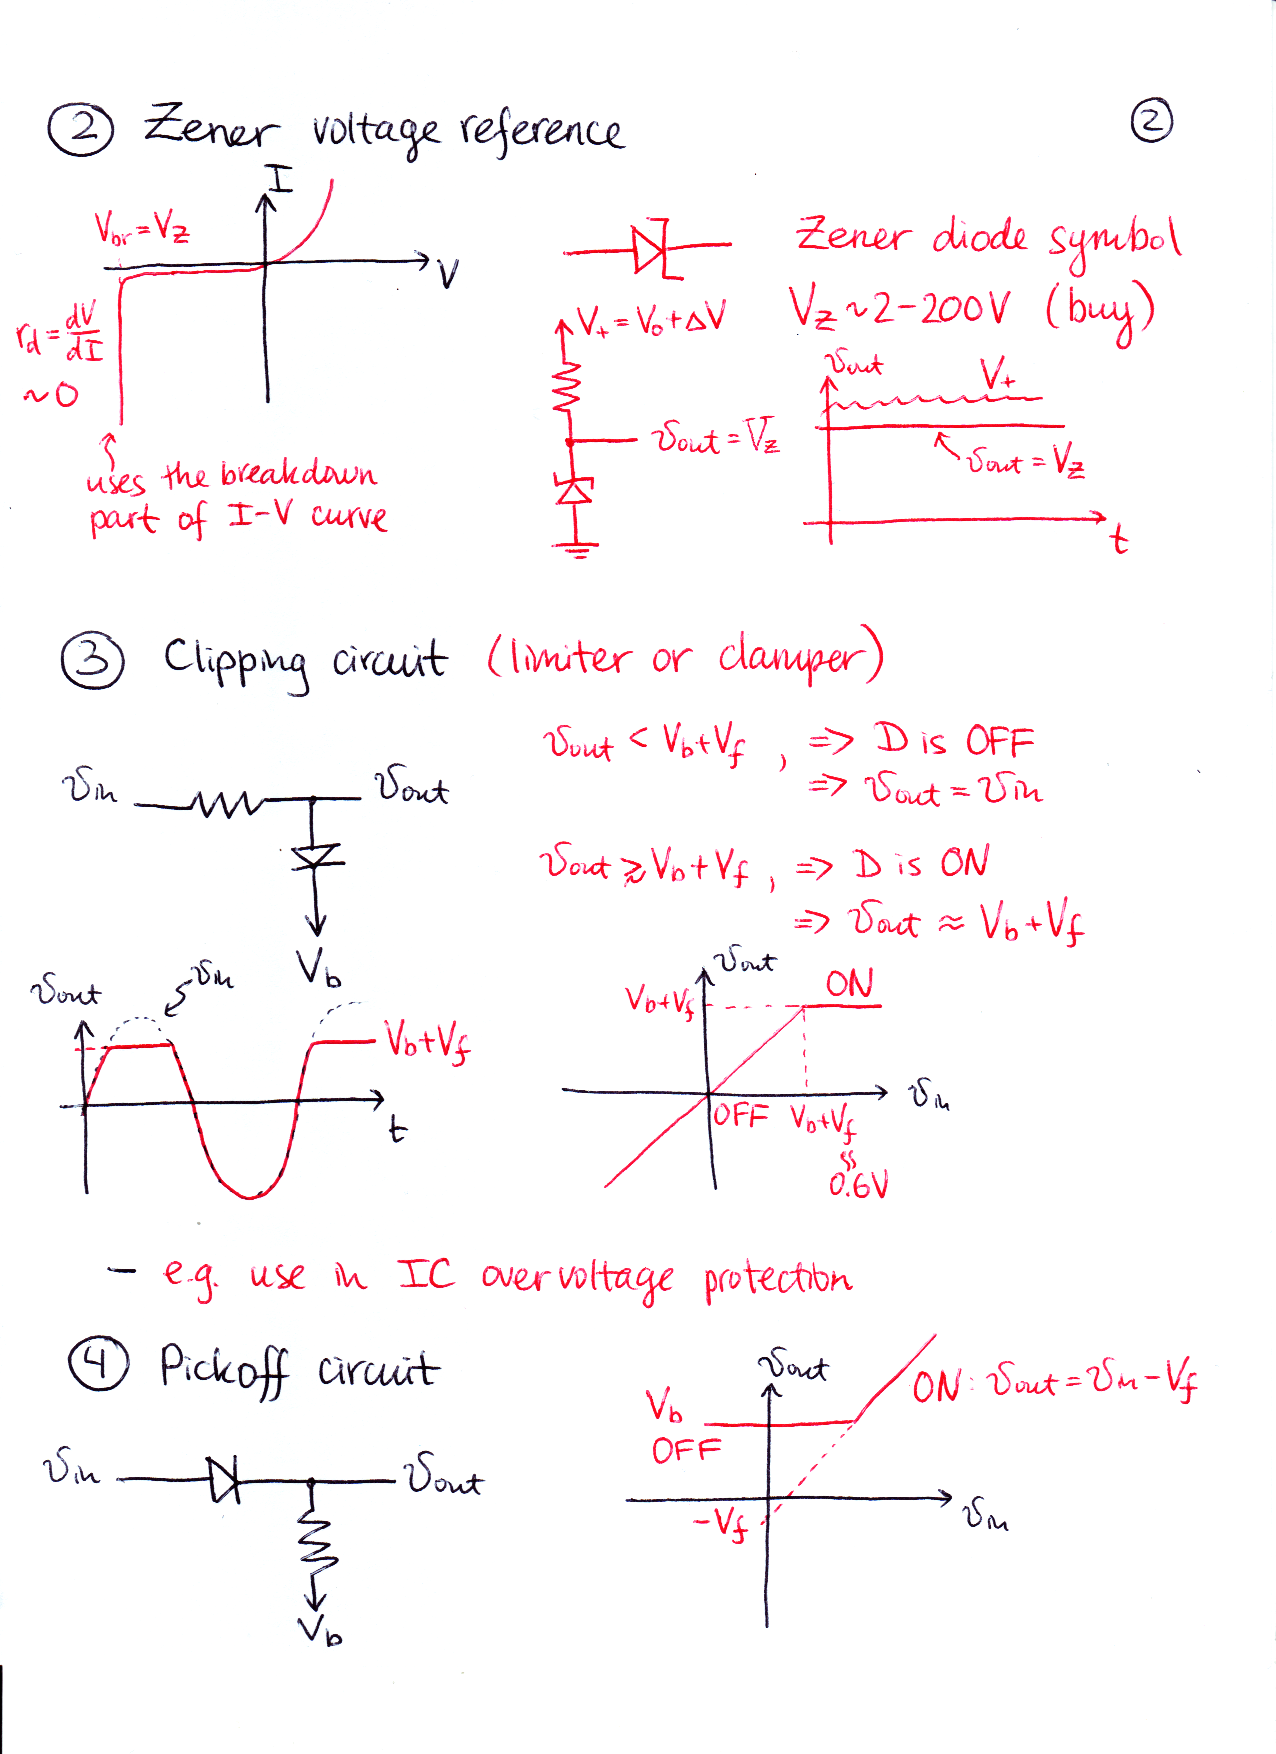 ② Zener voltage reference
②
I
V
Vbr = VZ
rd = dV/dI
~0
uses the breakdown
part of I-V curve
Zener diode symbol
VZ ~ 2-200V (buy)
V+ = Vo + ΔV
vout = Vz
vout
V+
vout = Vz
t
③ Clipping circuit (limiter or clamper)
vin
vout
Vb
vout < Vb+Vf , => D is OFF
=> vout = vin
vout ≳ Vb+Vf , => D is ON
=> vout ≈ Vb+Vf
vout
vin
Vb+Vf
t
vout
Vb+Vf
ON
vin
OFF
Vb+Vf
≈
0.6V
- e.g. use in IC overvoltage protection
④ Pickoff circuit
vin
vout
Vb
vout
Vb
OFF
ON: vout = vin - Vf
-Vf
vin